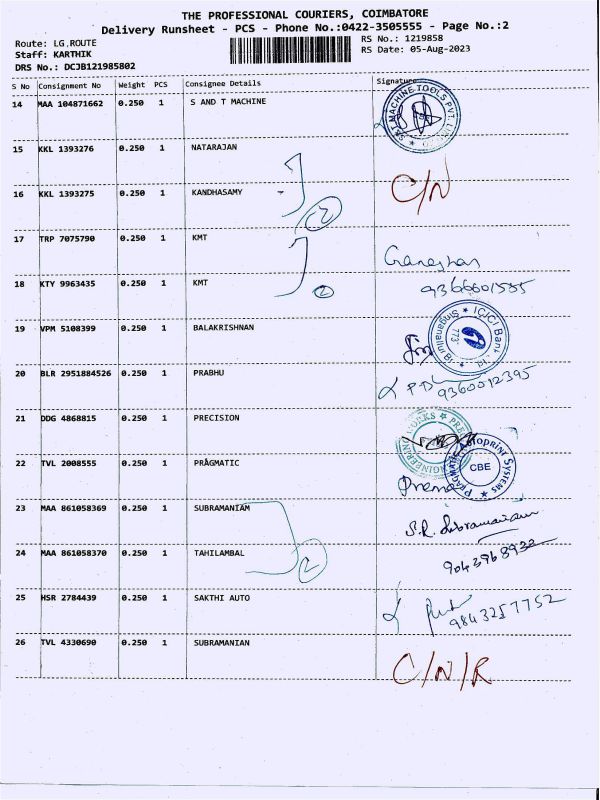 THE PROFESSIONAL COURIERS, COIMBATORE
Delivery Runsheet - PCS - Phone No.:0422-3505555 - Page No.:2
Route: LG.ROUTE
Staff: KARTHIK
DRS No.: DCJB121985802
RS No.: 1219858
RS Date: 05-Aug-2023
S No Consignment No Weight PCS Consignee Details Signature
14 MAA 104871662 0.250 1 S AND T MACHINE
S&T MACHINE TOOLS PVT. LTD.
15 KKL 1393276 0.250 1 NATARAJAN
C/N
16 KKL 1393275 0.250 1 KANDHASAMY
2
17 TRP 7075790 0.250 1 KMT
Ganeshan
18 KTY 9963435 0.250 1 KMT
2
9366601535
19 VPM 5108399 0.250 1 BALAKRISHNAN
ICICI Bank Ltd. Singanallur Br.
773
20 BLR 2951884526 0.250 1 PRABHU
9360012395
21 DDG 4868815 0.250 1 PRECISION
22 TVL 2008555 0.250 1 PRAGMATIC
PRAGMATIC Autoprint Systems
CBE
Prema
23 MAA 861058369 0.250 1 SUBRAMANIAM
S.R. Subramaniam
24 MAA 861058370 0.250 1 TAHILAMBAL
2
9043968932
25 HSR 2784439 0.250 1 SAKTHI AUTO
9843257752
26 TVL 4330690 0.250 1 SUBRAMANIAN
C/N/R